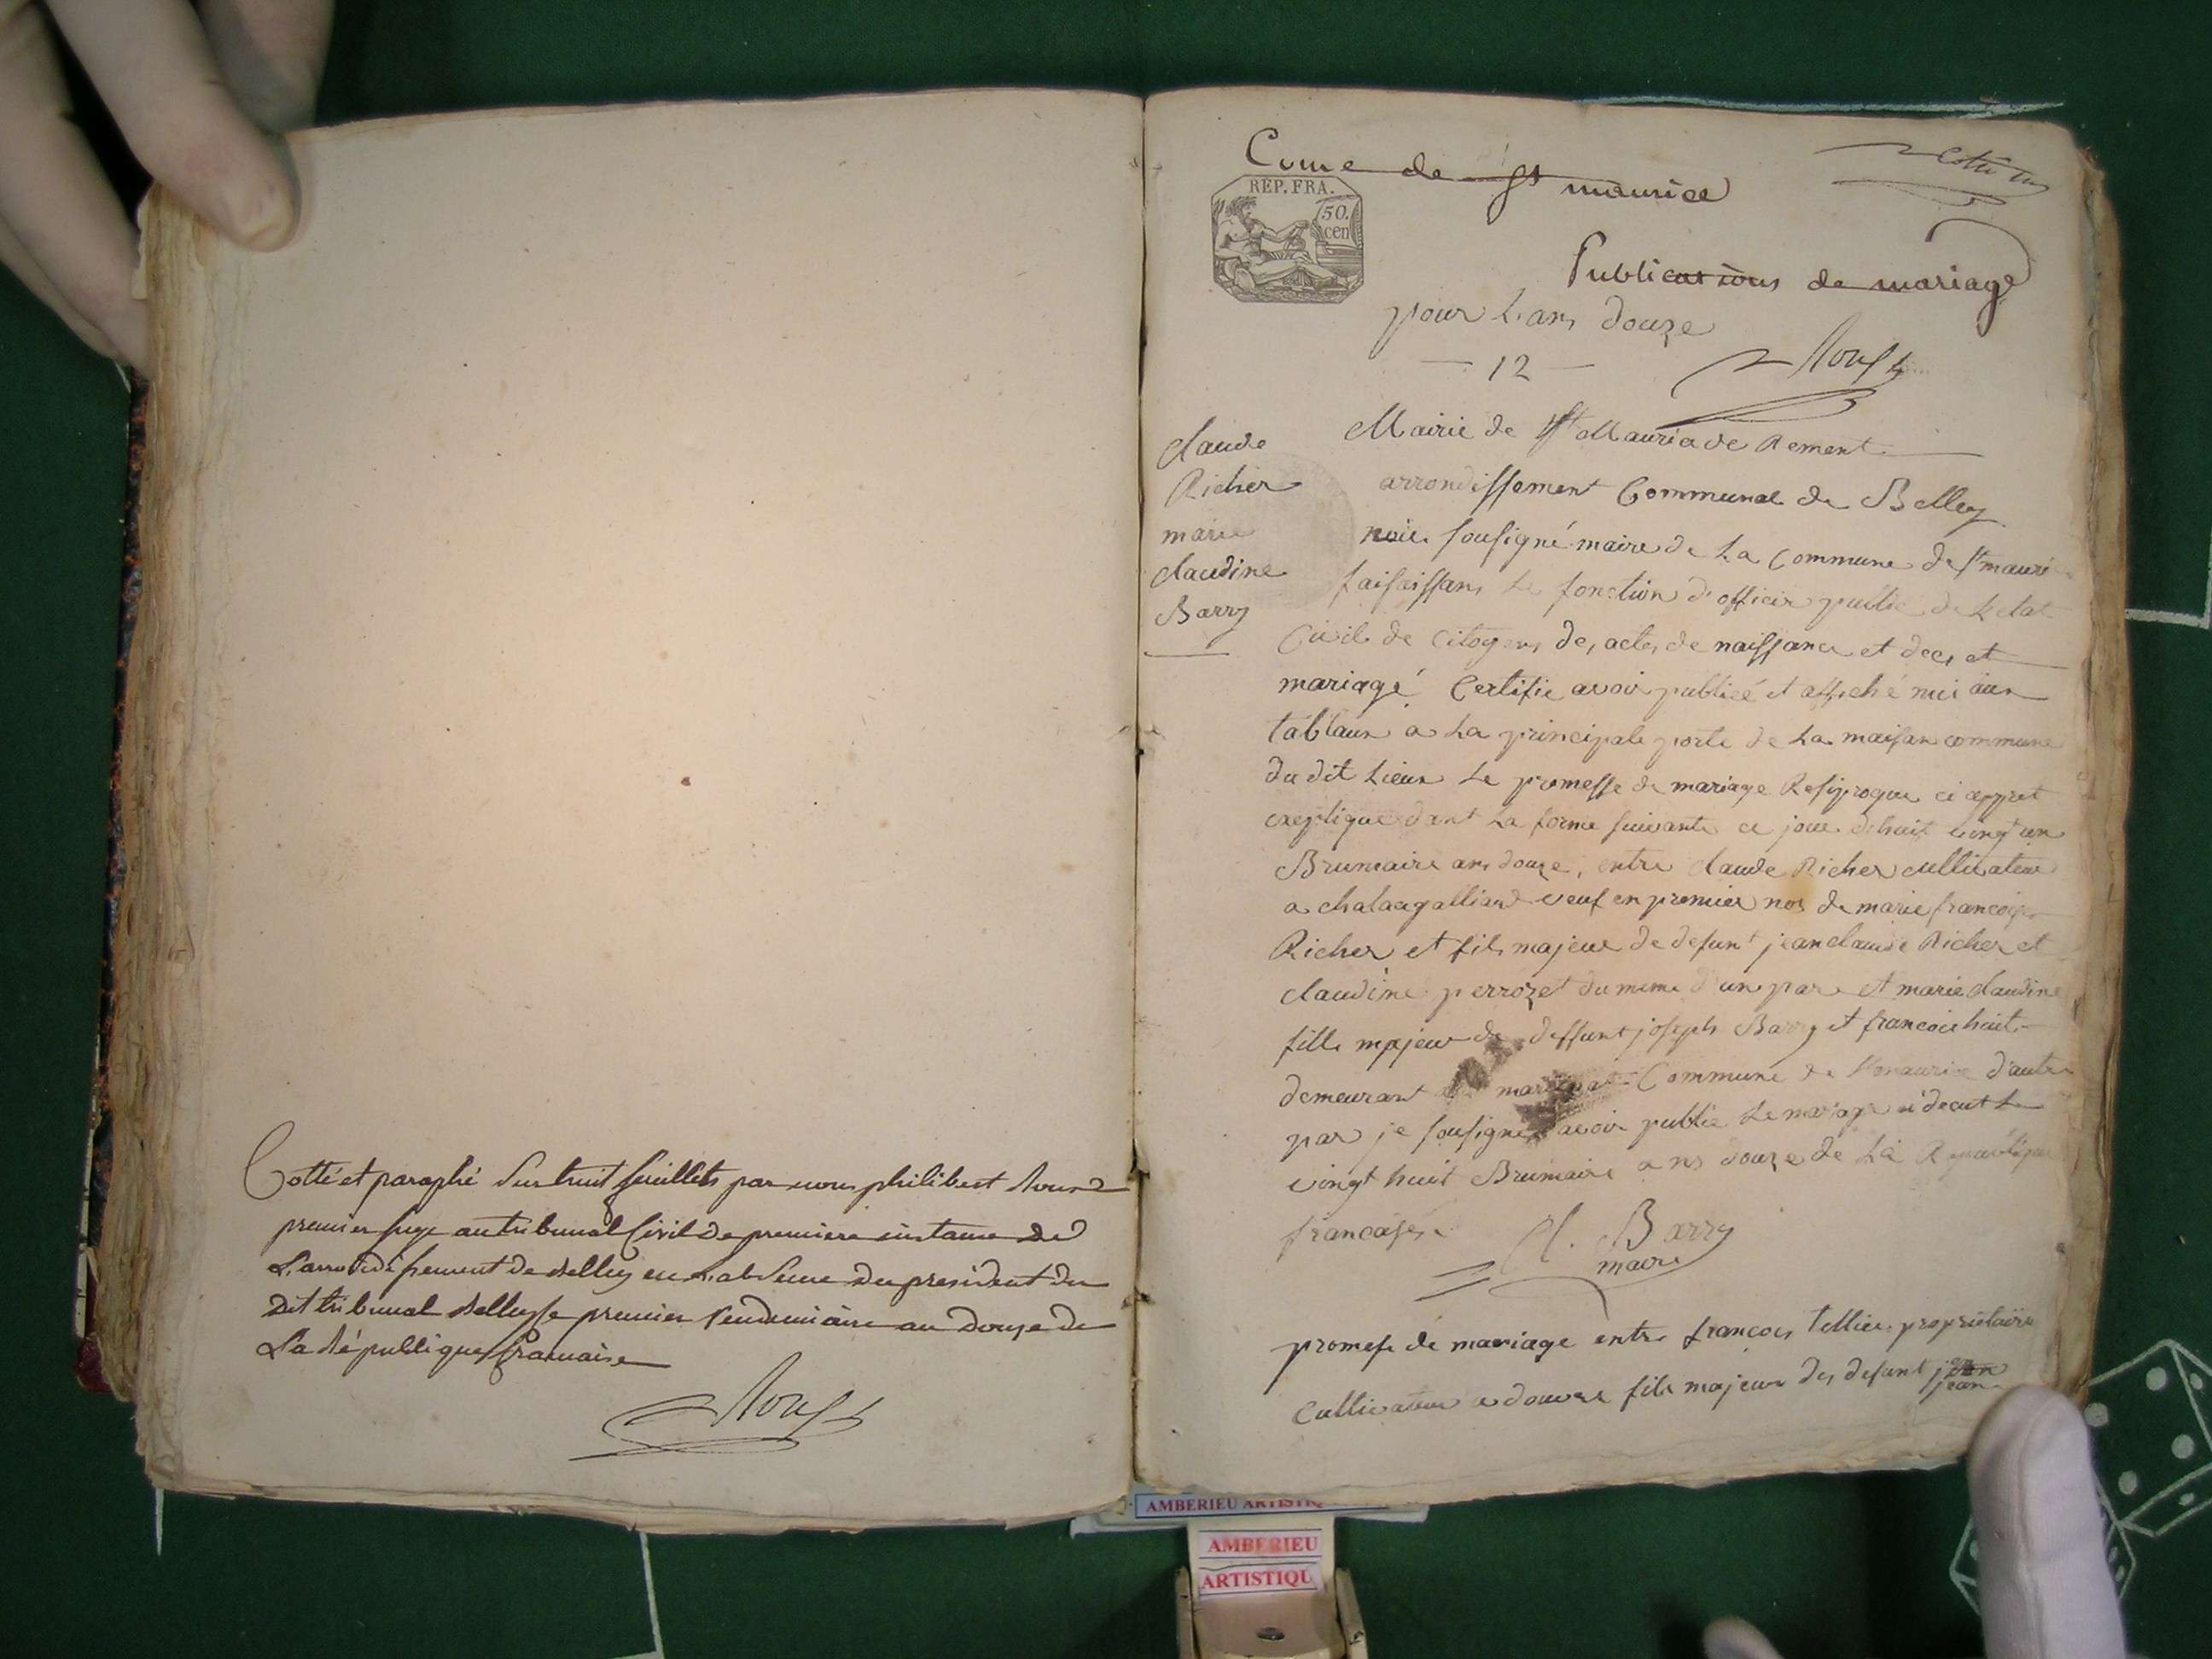 Cotté et paraphé sur huit feuillets par nous philibert
premier juge au tribunal Civil de premiere instance de
L'arrondissement de Belley en L'absence du president du
dit tribunal Belley le premier Vendemiaire an douze de
La République francaise
Cne de St maurice
REP. FRA.
50.
cen
Publications de mariage
pour L'an douze
12
claude
Richer
marie
claudine
Barry
Mairie de St Maurice de Rement
arrondissement Communal de Belley
sousigné maire de La Commune de St mauri
faisaissans Le fonction d'officier public de L'etat
Civil de Citoyens des actes de naissance et deces et
mariagé Certifie avoir publié et affiché
tablaux a La principale porte de La maison commune
du dit Lieux Le promesse de mariage Resiproque ci appret
explique dant La forme suivante ce jour vingt un
Brumaire ans douze, entre claude Richer cultivateur
a veuf en premier nos de marie francoise
Richer et fils majeur de defunt jean claude Richer et
claudine perrozet du meme d'une par et marie claudine
fille majeur de deffunt joseph Barry et francoise huit
demeurant Commune de St maurice d'autre
par je sousigne avoir publie Le mariage
vingt huit Brumaire ans douze de La Republique
francaise
Cl. Barry
maire
promese de mariage entre francois tellier propriétaire
Cultivateur a douvre fils majeur des defunt
jean
AMBERIEU
AMBERIEU
ARTISTIQU